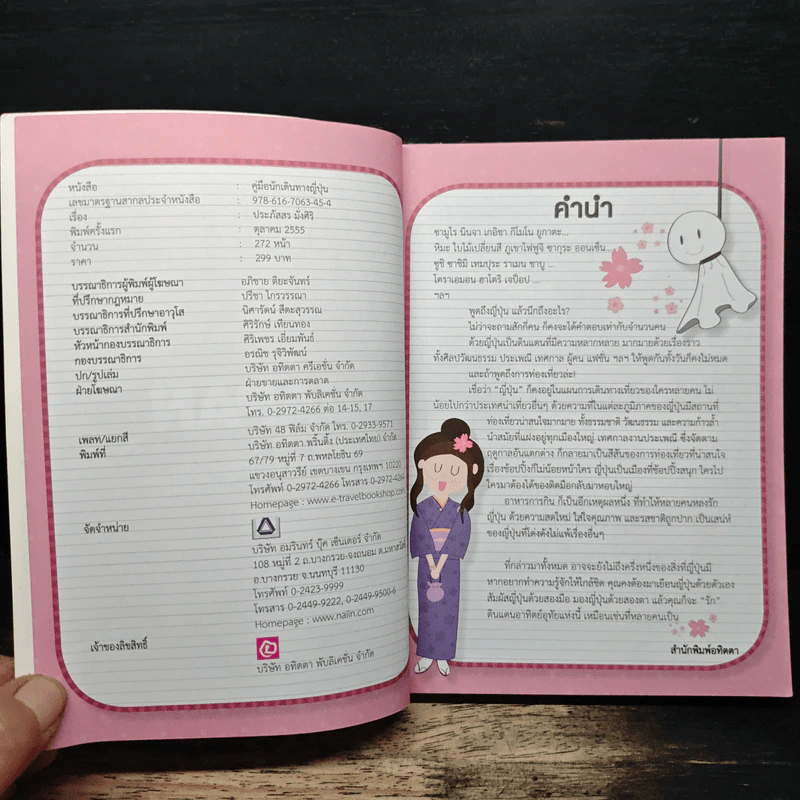 หนังสือ : คู่มือนักเดินทางญี่ปุ่น
เลขมาตรฐานสากลประจำหนังสือ : 978-616-7063-45-4
เรื่อง : ประภัสสร มั่งศิริ
พิมพ์ครั้งแรก : ตุลาคม 2555
จำนวน : 272 หน้า
ราคา : 299 บาท
บรรณาธิการผู้พิมพ์ผู้โฆษณา อภิชาย ติยะจันทร์
ที่ปรึกษากฎหมาย ปรีชา ไกรวรรณา
บรรณาธิการที่ปรึกษาอาวุโส นิศารัตน์ สีตะสุวรรณ
บรรณาธิการสำนักพิมพ์ ศิริรักษ์ เทียนทอง
หัวหน้ากองบรรณาธิการ ศิริเพชร เอี่ยมพันธ์
กองบรรณาธิการ อรณิช รุจิวิพัฒน์
ปก/รูปเล่ม บริษัท อทิตตา ครีเอชั่น จำกัด
ฝ่ายโฆษณา ฝ่ายขายและการตลาด
บริษัท อทิตตา พับลิเคชั่น จำกัด
โทร. 0-2972-4266 ต่อ 14-15, 17
เพลท/แยกสี บริษัท 48 ฟิล์ม จำกัด โทร. 0-2933-9571
พิมพ์ที่ บริษัท อทิตตา พริ้นติ้ง (ประเทศไทย) จำกัด
67/79 หมู่ที่ 7 ถ.พหลโยธิน 69
แขวงอนุสาวรีย์ เขตบางเขน กรุงเทพฯ 10220
โทรศัพท์ 0-2972-4266 โทรสาร 0-2972-4264
Homepage : www.e-travelbookshop.com
จัดจำหน่าย
บริษัท อมรินทร์ บุ๊ค เซ็นเตอร์ จำกัด
108 หมู่ที่ 2 ถ.บางกรวย-จงถนอม ต.มหาสวัสดิ์
อ.บางกรวย จ.นนทบุรี 11130
โทรศัพท์ 0-2423-9999
โทรสาร 0-2449-9222, 0-2449-9500-6
Homepage : www.naiin.com
เจ้าของลิขสิทธิ์
บริษัท อทิตตา พับลิเคชั่น จำกัด
คำนำ
ซามูไร นินจา เกอิชา กิโมโน ยูกาตะ...
หิมะ ใบไม้เปลี่ยนสี ภูเขาไฟฟูจิ ซากุระ ออนเซ็น...
ซูชิ ซาชิมิ เทมปุระ ราเมน ชาบู ...
โดราเอมอน ฮาโตริ เจป็อป ...
ฯลฯ
พูดถึงญี่ปุ่น แล้วนึกถึงอะไร?
ไม่ว่าจะถามสักกี่คน ก็คงจะได้คำตอบเท่ากับจำนวนคน
ด้วยญี่ปุ่นเป็นดินแดนที่มีความหลากหลาย มากมายด้วยเรื่องราว
ทั้งศิลปวัฒนธรรม ประเพณี เทศกาล ผู้คน แฟชั่น ฯลฯ ให้พูดกันทั้งวันก็คงไม่หมด
และถ้าพูดถึงการท่องเที่ยวล่ะ!
เชื่อว่า “ญี่ปุ่น” ก็คงอยู่ในแผนการเดินทางเที่ยวของใครหลายคน ไม่
น้อยไปกว่าประเทศน่าเที่ยวอื่นๆ ด้วยความที่ในแต่ละภูมิภาคของญี่ปุ่นมีสถานที่
ท่องเที่ยวน่าสนใจมากมาย ทั้งธรรมชาติ วัฒนธรรม และความก้าวล้ำ
นำสมัยที่แฝงอยู่ทุกเมืองใหญ่ เทศกาลงานประเพณี ซึ่งจัดตาม
ฤดูกาลอันแตกต่าง ก็กลายมาเป็นสีสันของการท่องเที่ยวที่น่าสนใจ
เรื่องช้อปปิ้งก็ไม่น้อยหน้าใคร ญี่ปุ่นเป็นเมืองที่ช้อปปิ้งสนุก ใครไป
ใครมาต้องได้ของติดมือกลับมาหอบใหญ่
อาหารการกิน ก็เป็นอีกเหตุผลหนึ่ง ที่ทำให้หลายคนหลงรัก
ญี่ปุ่น ด้วยความสดใหม่ ใส่ใจคุณภาพ และรสชาติถูกปาก เป็นเสน่ห์
ของญี่ปุ่นที่โด่งดังไม่แพ้เรื่องอื่นๆ
ที่กล่าวมาทั้งหมด อาจจะยังไม่ถึงครึ่งหนึ่งของสิ่งที่ญี่ปุ่นมี
หากอยากทำความรู้จักให้ใกล้ชิด คุณคงต้องมาเยือนญี่ปุ่นด้วยตัวเอง
สัมผัสญี่ปุ่นด้วยสองมือ มองญี่ปุ่นด้วยสองตา แล้วคุณก็จะ “รัก”
ดินแดนอาทิตย์อุทัยแห่งนี้ เหมือนเช่นที่หลายคนเป็น
สำนักพิมพ์อทิตตา